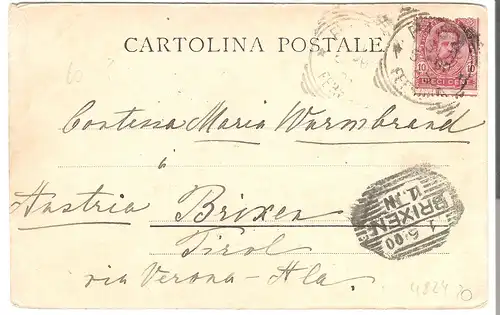 CARTOLINA POSTALE
10
Contessa Maria Wurmbrand
à
Austria Brixen
Tirol
via Verona-Ala.
BRIXEN
1 5 00
4824